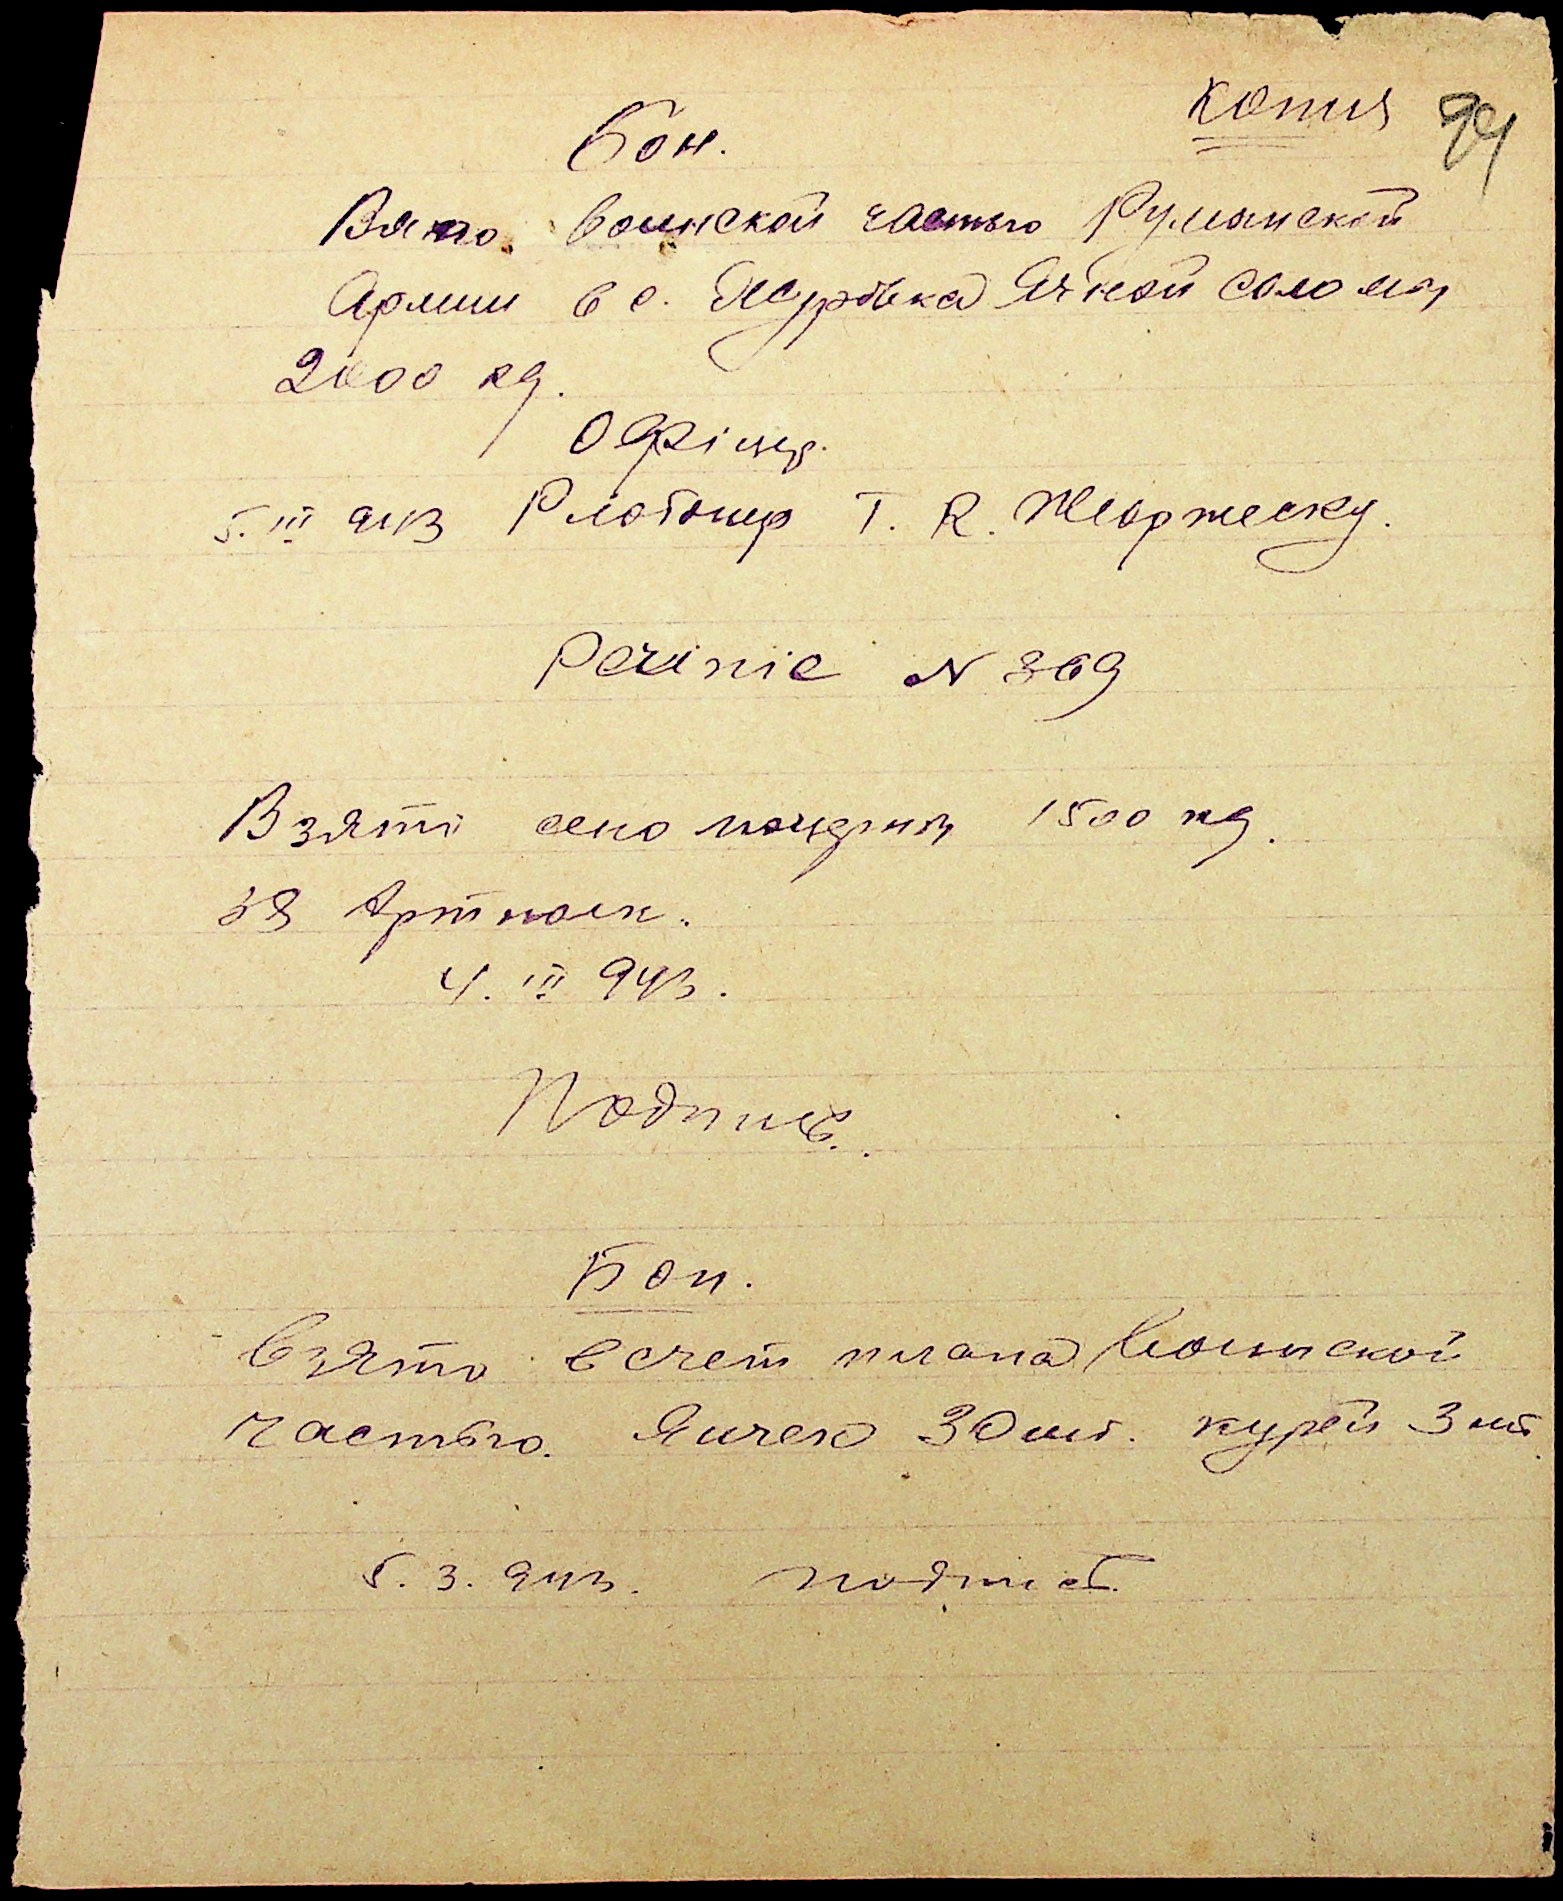 Копия 94
Бон.
Взято воинской частью Румынской
Армии в с. Журовка Ячной соломы
2000 кг.
Офіцер.
5.III 943 Плотонер Т. R. Жоржеску.
Рецепіс N 369
Взято сено люцерны 1500 кг.
38 Артполк.
4. III 943.
Подпись.
Бон.
Взято в счет плана Воинской
частью. Яичек 30 шт. курей 3 шт.
5. 3. 943. подпись.